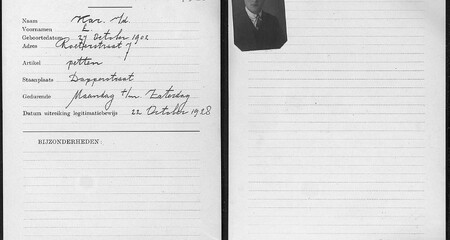 Naam
Voornamen L.
Geboortedatum 27 October 1902
Adres Roetersstraat 7
Artikel petten
Staanplaats Dapperstraat
Gedurende Maandag t/m Zaterdag
Datum uitreiking legitimatiebewijs 22 October 1928
BIJZONDERHEDEN: